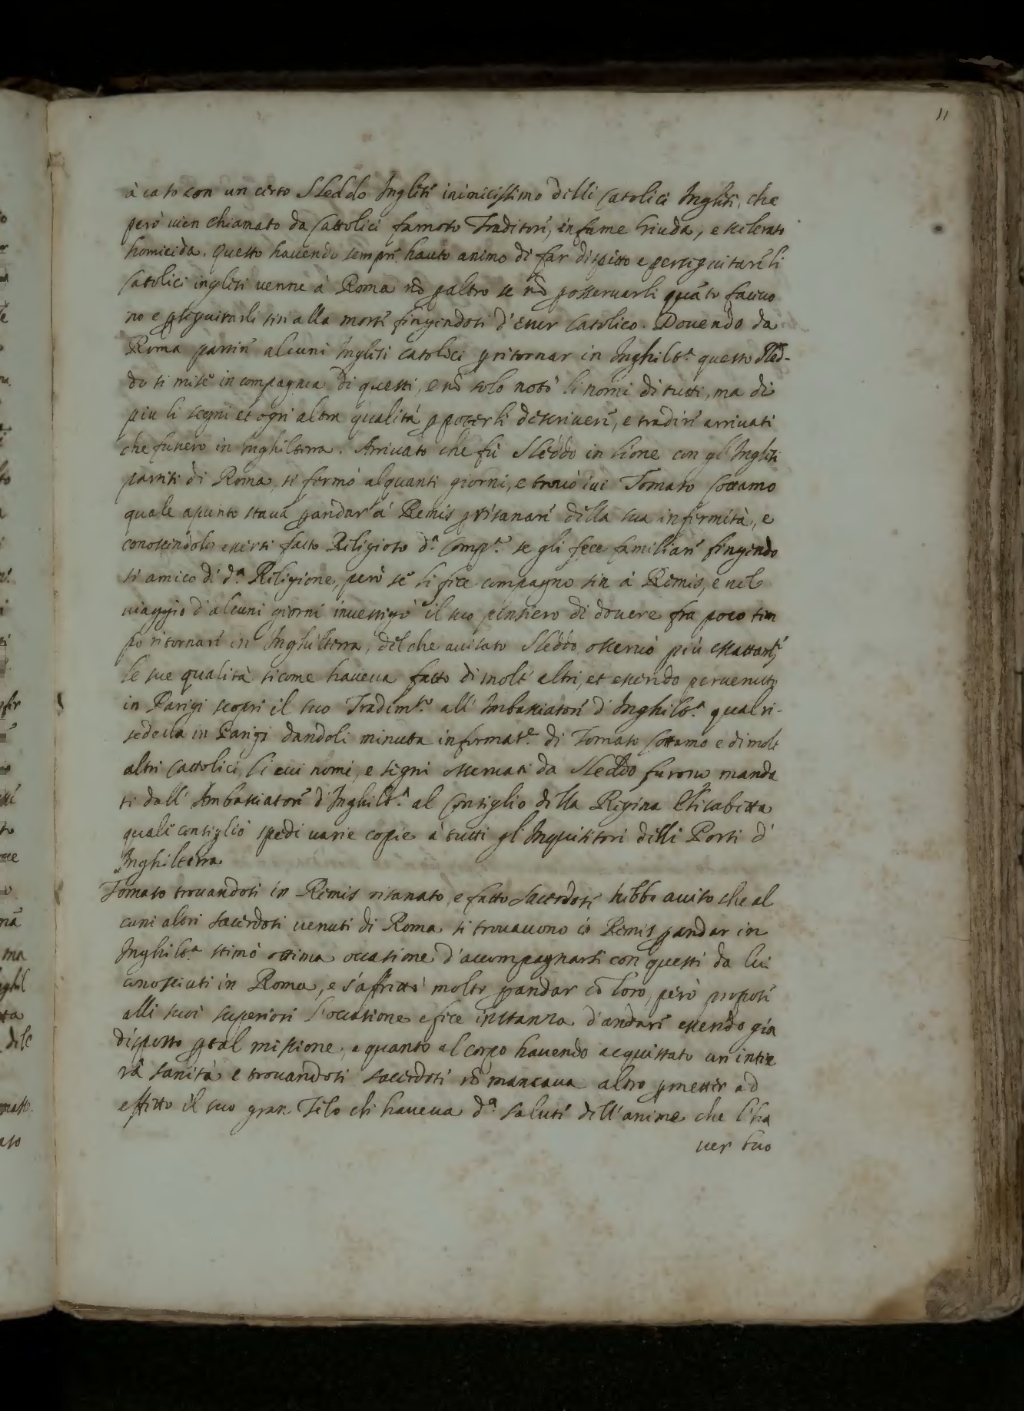 11
à cato con un certo Sleddo Inglese inimicissimo delli Catolici Inglesi, che
però vien chiamato da Cattolici famoso Traditore, infame Giuda, e scelerato
homicida. Questo havendo sempre hauto animo di far dispetto e perseguitare li
Catolici inglesi venne à Roma nõ p altro se nõ p osservarli quãto facivo
no e pseguitarli sin alla morte fingendosi d'esser Catolico. Dovendo da
Roma partire alcuni Inglesi catolici p ritornar in Inghilt.ª questo Sled-
do si mise in compagnia di questi, e nõ solo notò li nomi di tutti, ma di
piu li segni et ogni altra qualità p poterli descrivere, e tradire arrivati
che fussero in Inghilterra. Arrivato che fù Sleddo in Lione con gl'Inglesi
partiti di Roma, si fermò alquanti giorni, e trovò ivi Tomaso Cottamo
quale apunto stava p andar à Remis p risanare della sua infirmità, e
conoscendolo esersi fatto Religioso d.ª Comp.ª se gli fece familiare fingendo
si amico di d.ª Religione, però se li fece compagno sin à Remis, e nel
viaggio d'alcuni giorni investigò il suo pensiero di dovere fra poco tem
po ritornare in Inghilterra, del che avisato Sleddo, osservò più esattamte
le sue qualità sicome haveva fatto di molti altri, et essendo pervenuto
in Parigi scoprì il suo Tradimto all'Imbasciatore d'Inghilt.ª qual ri-
sedeva in Parigi dandoli minuta informat.e di Tomaso Cottamo e di molti
altri Cattolici, li cui nomi, e signi osservati da Sleddo furono manda
ti dall'Ambasciatore d'Inghilt.ª al Consiglio della Regina Elisabetta
quale consiglio spedì varie copie à tutti gl'Inquisitori delli Porti d'
Inghilterra
Tomaso trovandosi in Remis risanato, e fatto Sacerdote hebbe aviso che al
cuni altri sacerdoti venuti di Roma si trovavono iñ Remis p andar in
Inghilt.ª stimò ottima occasione d'accompagnarsi con questi da lui
conosciuti in Roma, e s'affrettò molto p andar cõ loro, però propose
alli suoi superiori l'occasione e fece instanza d'andare essendo già
disposto p tal missione, e quanto al corpo havendo acquistato un'intie
ra sanità e trovandosi sacerdote nõ mancava altro p metter ad
effetto il suo gran Zelo che haveva d.ª salute dell'anime che l'ha
ver suo